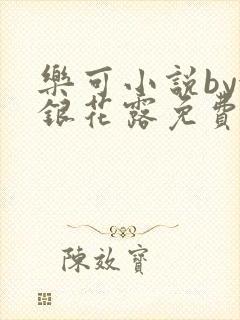 樂可小説by
銀花露免費
陳效寶